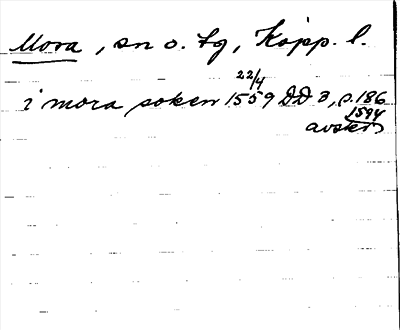 Mora, sn o. tg, Kopp. l.
i mora soken 22/4 1559 DD 3, s. 186
1594
avskr